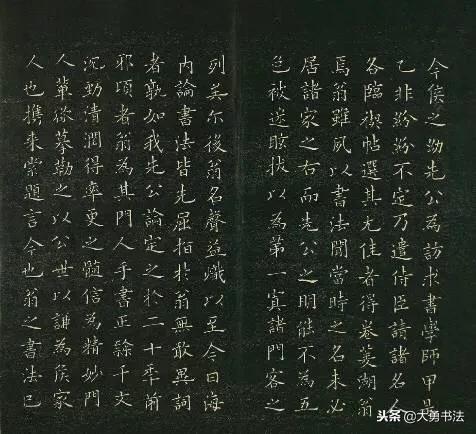 今侯之幼先公為訪求書學師甲是
乙非紛紛不定乃遣侍臣請諸名人
各臨禊帖選其尤佳者得卷菱湖翁
焉翁雖夙以書法聞當時之名未必
居諸家之右而先公之明能不為五
色被迷眩拔以為第一寘諸門客之
列矣尔後翁名聲益熾以至今日海
内論書法皆先屈指於翁無敢異詞
者孰知我先公論定之於二十季前
邪頃者翁為其門人手書正千文
沉勁清潤得率更之髓信為精妙門
人輩欲摹勒之以公世以謙為侯家
人也携来索題言今也翁之書法已
头条 @大勇书法